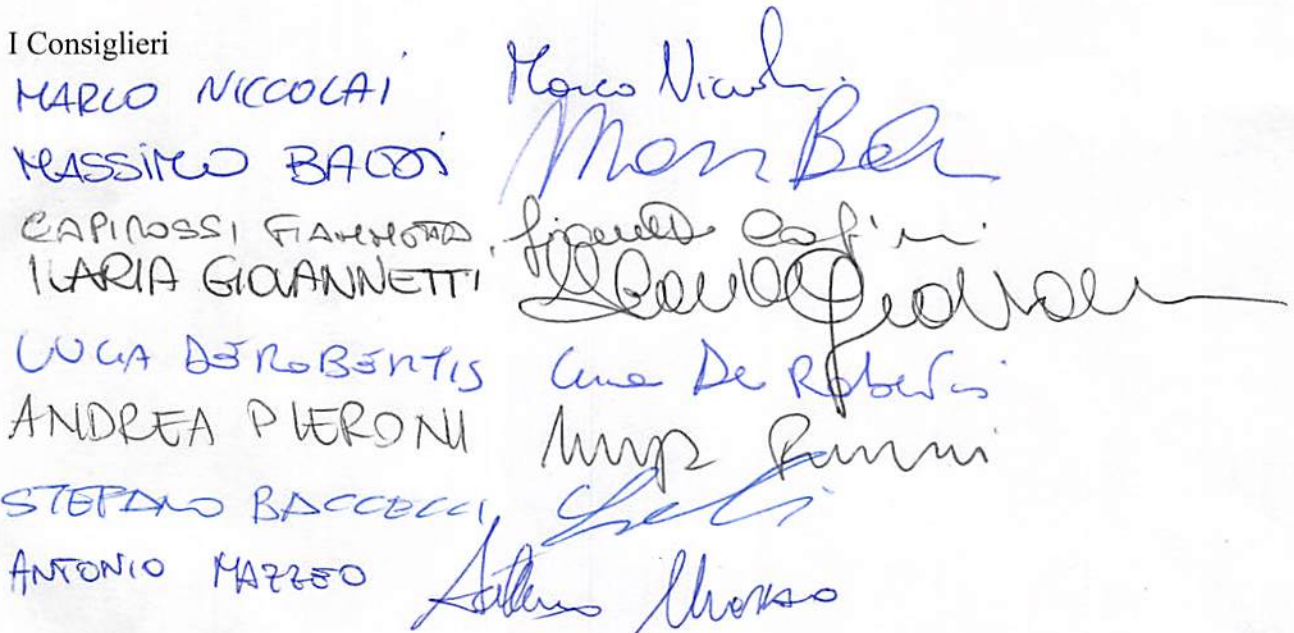 I Consiglieri
MARCO NICCOLAI Marco Niccolai
MASSIMO BALDI
CAPIROSSI FIAMMETTA,
ILARIA GIOVANNETTI
LUCA DE ROBERTIS Luca De Robertis
ANDREA PIERONI
STEFANO BACCELLI
ANTONIO MAZZEO Antonio